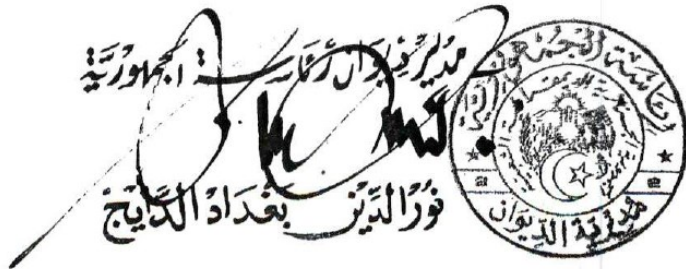 مدير ديوان رئاسة الجمهورية
نُورُ الدِّين بَغْدَادْ الدَّايِجْ
رئاسة الجمهورية
مديرية الديوان